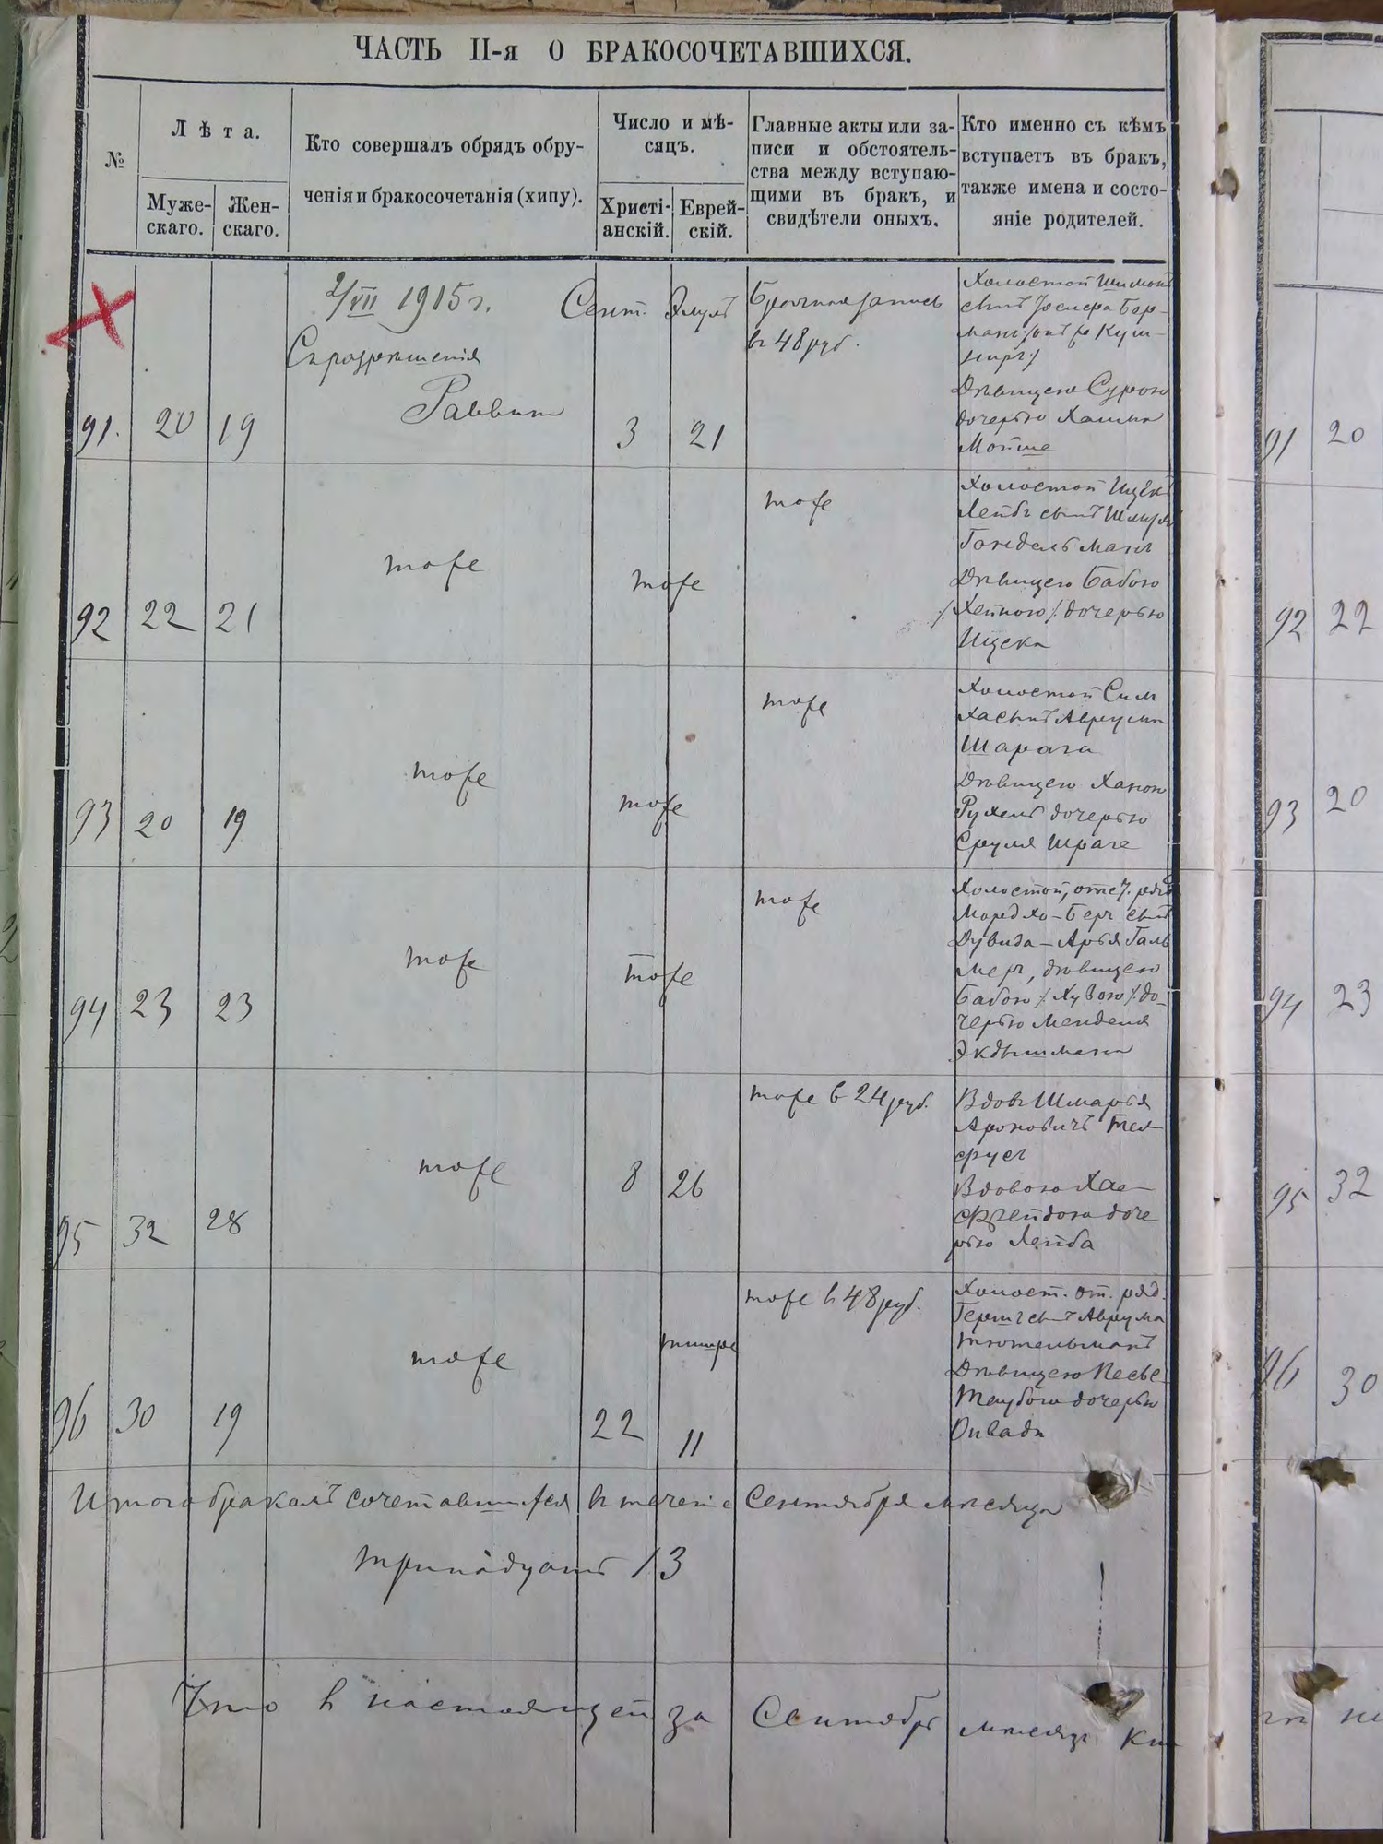 ЧАСТЬ II-я О БРАКОСОЧЕТАВШИХСЯ.
№
Лѣта.
Муже-
скаго.
Жен-
скаго.
Кто совершалъ обрядъ обру-
ченія и бракосочетанія (хипу).
Число и мѣ-
сяцъ.
Христі-
анскій.
Еврей-
скій.
Главные акты или за-
писи и обстоятель-
ства между вступаю-
щими въ бракъ, и
свидѣтели оныхъ.
Кто именно съ кѣмъ
вступаетъ въ бракъ,
также имена и состо-
яніе родителей.
91. 20 19
2/VII 1915 г.
Съ разрѣшенія
Раввин
Сент. Элулъ
3 21
Брачная запись
в 48 руб.
Холостой
сынъ Бер-
Куш-
ниръ/
Дѣвицею Сурою
дочерью Хаима
Мотше
92 22 21
тоже
тоже
тоже
Холостой Ицек
Лейбъ сынъ
Гондельманъ
Дѣвицею Бабою
/Хейною/ дочерью
Ицека
93 20 19
тоже
тоже
тоже
Холостой Сим
ха сынъ Аврума
Шарага
Дѣвицею Ханою
Рухель дочерью
Сруля Шраге
94 23 23
тоже
тоже
тоже
Холостой,
Мордхо-Беръ сынъ
Дувида-Арья Галь
меръ, дѣвицею
Бабою /Хувою/ до-
черью Менделя
95 32 28
тоже
8 26
тоже в 24 руб.
Вдовъ Шмарья
Ароновичъ
Вдовою Хая-
Фрейдою доче
рью Лейба
96 30 19
тоже
22
тишре
11
тоже в 48 руб.
Холост. от. ряд.
Гершъ сынъ Аврума
Тютельманъ
Дѣвицею Песье-
Таубою дочерью
Овадь
Итого бракомъ сочетавшихся в течении Сентября мѣсяца
тринадцать 13
Что в настоящей за Сентябрь мѣсяцъ
91 20
92 22
93 20
94 23
95 32
96 30